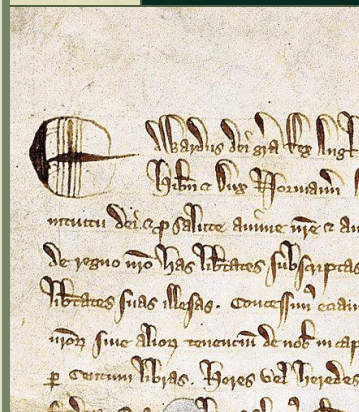 Edwardus dei gra Rex Angl
Hibn & Dux Normann
intuitu dei & p salute anime nre & an
de regno nro has libtates subscriptas
libtates suas illesas. Concessim eciam
nror sive alior tenenciu de nob in cap
p Centum libras. Heres vel heredes